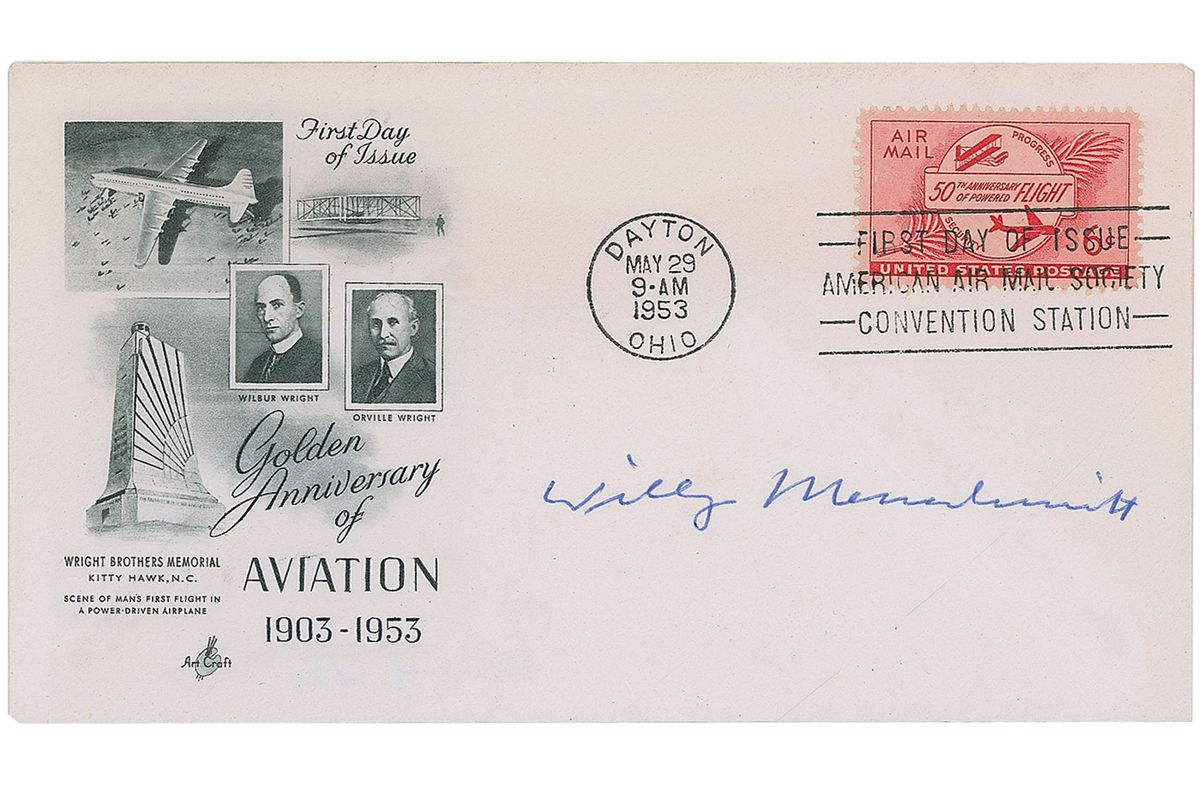 First Day
of Issue
WILBUR WRIGHT
ORVILLE WRIGHT
Golden
Anniversary
of
AVIATION
1903-1953
WRIGHT BROTHERS MEMORIAL
KITTY HAWK, N.C.
SCENE OF MAN'S FIRST FLIGHT IN
A POWER-DRIVEN AIRPLANE
Art Craft
DAYTON
MAY 29
9-AM
1953
OHIO
AIR
MAIL
PROGRESS
50TH ANNIVERSARY
OF POWERED FLIGHT
SECURITY
6¢
UNITED STATES POSTAGE
FIRST DAY OF ISSUE
AMERICAN AIR MAIL SOCIETY
CONVENTION STATION
Willy Messerschmitt